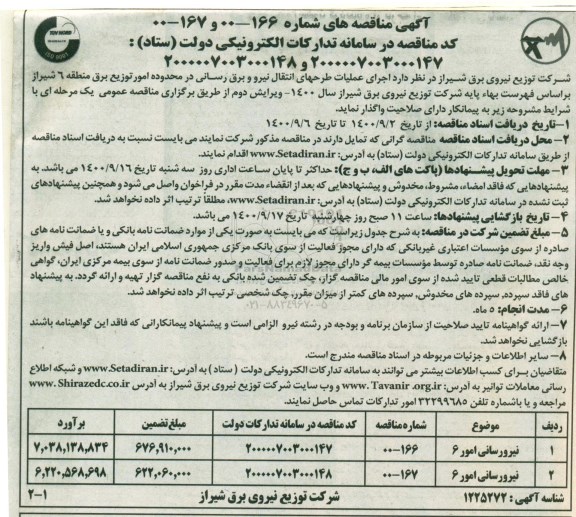 آگهی مناقصه های شماره ۱۶۶-۰۰ و ۱۶۷-۰۰
کد مناقصه در سامانه تدارکات الکترونیکی دولت (ستاد) :
۲۰۰۰۰۰۷۰۰۳۰۰۰۱۴۷ و ۲۰۰۰۰۰۷۰۰۳۰۰۰۱۴۸
شرکت توزیع نیروی برق شیراز در نظر دارد اجرای عملیات طرحهای انتقال نیرو و برق رسانی در محدوده امور توزیع برق منطقه ۶ شیراز
براساس فهرست بهاء پایه شرکت توزیع نیروی برق شیراز سال ۱۴۰۰- ویرایش دوم از طریق برگزاری مناقصه عمومی یک مرحله ای با
شرایط مشروحه زیر به پیمانکار دارای صلاحیت واگذار نماید.
۱-تاریخ دریافت اسناد مناقصه: از تاریخ ۱۴۰۰/۹/۲ تا تاریخ ۱۴۰۰/۹/۶
۲- محل دریافت اسناد مناقصه مناقصه گرانی که تمایل دارند در مناقصه مذکور شرکت نمایند می بایست نسبت به دریافت اسناد مناقصه
از طریق سامانه تدارکات الکترونیکی دولت (ستاد) به آدرس: www.Setadiran.ir اقدام نمایند.
۳- مهلت تحویل پیشنهادها (پاکت های الف، ب و ج): حداکثر تا پایان ساعت اداری روز سه شنبه تاریخ ۱۴۰۰/۹/۱۶ می باشد. به
پیشنهادهایی که فاقد امضاء، مشروط، مخدوش و پیشنهادهایی که بعد از انقضاء مدت مقرر در فراخوان واصل می شود و همچنین پیشنهادهای
ثبت نشده در سامانه تدارکات الکترونیکی دولت (ستاد) به آدرس: www.Setadiran.ir، مطلقاً ترتیب اثر داده نخواهد شد.
۴- تاریخ بازگشایی پیشنهادها: ساعت ۱۱ صبح روز چهارشنبه تاریخ ۱۴۰۰/۹/۱۷ می باشد.
۵- مبلغ تضمین شرکت در مناقصه: به شرح جدول زیر است که می بایست به صورت یکی از موارد ضمانت نامه بانکی و یا ضمانت نامه های
صادره از سوی مؤسسات اعتباری غیربانکی که دارای مجوز فعالیت از سوی بانک مرکزی جمهوری اسلامی ایران هستند، اصل فیش واریز
وجه نقد، ضمانت نامه صادره توسط مؤسسات بیمه گر دارای مجوز لازم برای فعالیت و صدور ضمانت نامه از سوی بیمه مرکزی ایران، گواهی
خالص مطالبات قطعی تایید شده از سوی امور مالی مناقصه گزار، چک تضمین شده بانکی به نفع مناقصه گزار تهیه و ارائه گردد. به پیشنهاد
های فاقد سپرده، سپرده های مخدوش، سپرده های کمتر از میزان مقرر، چک شخصی ترتیب اثر داده نخواهد شد.
۶- مدت انجام: ۵ ماه.
۷- ارائه گواهینامه تایید صلاحیت از سازمان برنامه و بودجه در رشته نیرو الزامی است و پیشنهاد پیمانکارانی که فاقد این گواهینامه باشند
بازگشایی نخواهد شد.
۸- سایر اطلاعات و جزئیات مربوطه در اسناد مناقصه مندرج است.
متقاضیان برای کسب اطلاعات بیشتر می توانند به سامانه تدارکات الکترونیکی دولت ( ستاد ) به آدرس: www.Setadiran.ir و شبکه اطلاع
رسانی معاملات توانیر به آدرس: www. Tavanir .org.ir و وب سایت شرکت توزیع نیروی برق شیراز به آدرس www. Shirazedc.co.ir
مراجعه و یا باشماره تلفن ۳۲۲۹۹۶۸۵ امور تدارکات تماس حاصل نمایند.
ردیف موضوع شماره مناقصه کد مناقصه در سامانه تدارکات دولت مبلغ تضمین برآورد
۱ نیرورسانی امور ۶ ۱۶۶-۰۰ ۲۰۰۰۰۰۷۰۰۳۰۰۰۱۴۷ ۶۷۶,۹۱۰,۰۰۰ ۷,۰۳۸,۱۳۸,۸۳۴
۲ نیرورسانی امور ۶ ۱۶۷-۰۰ ۲۰۰۰۰۰۷۰۰۳۰۰۰۱۴۸ ۶۲۲,۰۶۰,۰۰۰ ۶,۲۲۰,۵۶۸,۶۹۸
شناسه آگهی : ۱۲۲۵۲۷۲ شرکت توزیع نیروی برق شیراز ۲-۱